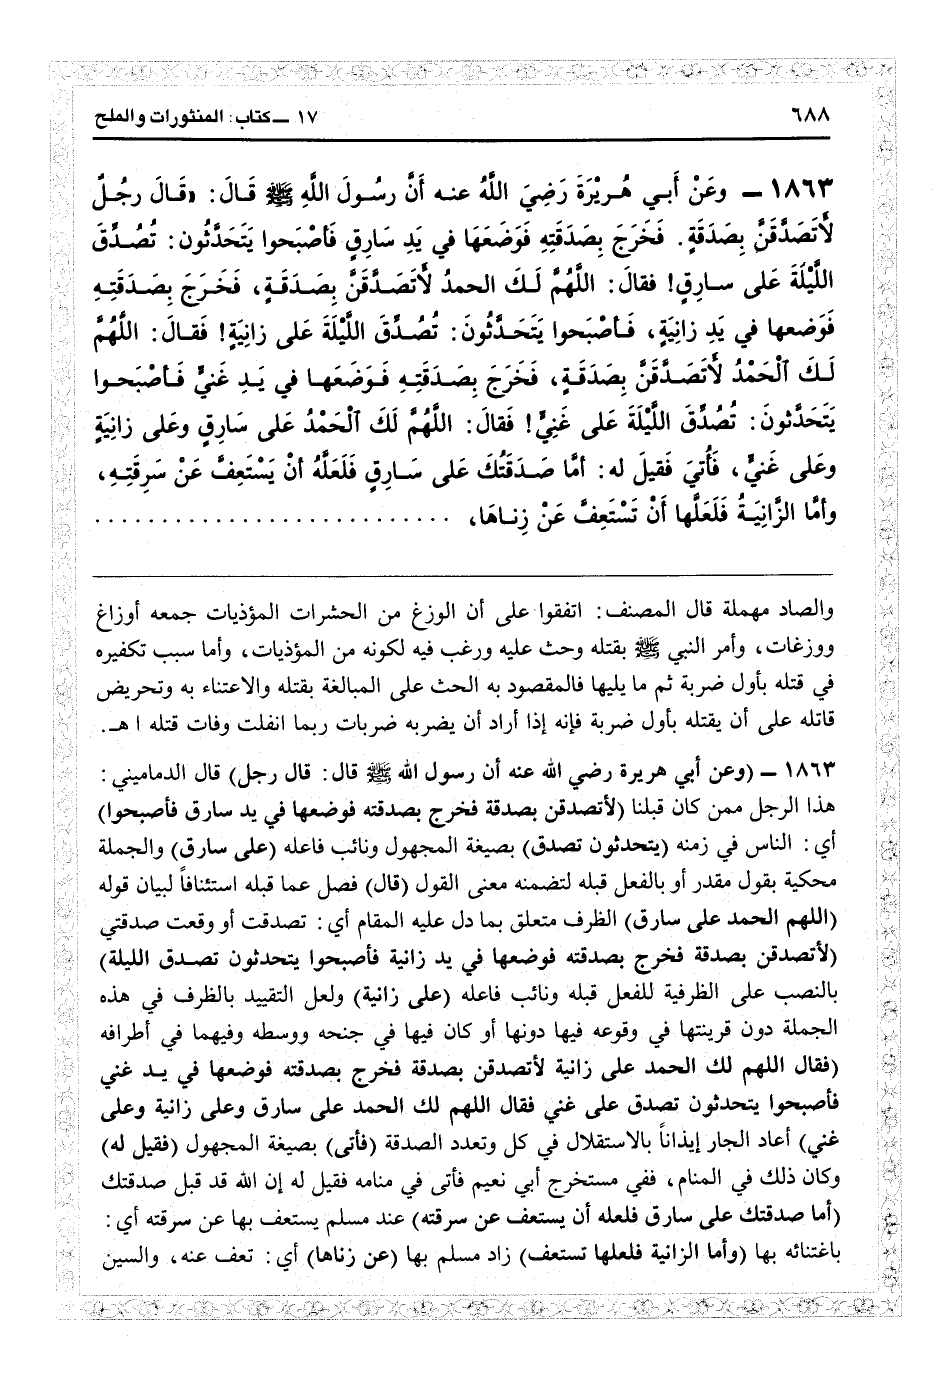 ٦٨٨
١٧ ــ كتاب: المنثورات والملح
١٨٦٣ ــ وعَنْ أَبـي هُـرَيْرَةَ رَضِيَ اللَّهُ عنـه أَنَّ رسُـولَ اللَّهِ ﷺ قَـالَ: «قَـالَ رجُـلٌ
لأَتَصَدَّقَنَّ بِصَدَقَةٍ. فَخَرَجَ بِصَدَقَتِهِ فَوَضَعَهَا في يَدِ سَارِقٍ فَأَصْبَحوا يَتَحَدَّثُون: تُصُـدِّقَ
اللَّيْلَةَ عَلى سـارِقٍ! فقالَ: اللَّهُمَّ لَـكَ الحمدُ لأَتَصَـدَّقَنَّ بِصَدَقَـةٍ، فَخَـرَجَ بِصَدَقَتِـهِ
فَوَضَعها في يَدِ زانِيَةٍ، فَـأصْبَحوا يَتَحَدَّثُونَ: تُصُدِّقَ اللَّيْلَةَ عَلى زانِيَةٍ! فَقـالَ: اللَّهُمَّ
لَـكَ الْحَمْدُ لأَتَصَـدَّقَنَّ بِصَدَقَـةٍ، فَخَرَجَ بِصَدَقَتِـهِ فَـوَضَعَهـا في يَـدِ غَنيٍّ فَـأصْبَحـوا
يَتَحَدَّثونَ: تُصُدِّقَ اللَّيْلَةَ عَلى غَنِيٍّ! فَقالَ: اللَّهُمَّ لَكَ الْحَمْدُ عَلى سَارِقٍ وعَلى زانِيَةٍ
وعَلى غَنيٍّ، فَأُتيَ فَقيلَ له: أمَّا صَدَقَتُكَ عَلى سَـارِقٍ فَلَعَلَّهُ أنْ يَسْتَعِفَّ عَنْ سَرِقَتِـهِ،
وأمَّا الزَّانِيَـةُ فَلَعَلَّها أَنْ تَسْتَعِفَّ عَنْ زِنـاهَا، ...........................
والصاد مهملة قال المصنف: اتفقوا على أن الوزغ من الحشرات المؤذيات جمعه أوزاغ
ووزغات، وأمر النبي ﷺ بقتله وحث عليه ورغب فيه لكونه من المؤذيات، وأما سبب تكفيره
في قتله بأول ضربة ثم ما يليها فالمقصود به الحث على المبالغة بقتله والاعتناء به وتحريض
قاتله على أن يقتله بأول ضربة فإنه إذا أراد أن يضربه ضربات ربما انفلت وفات قتله ا هـ.
١٨٦٣ ــ (وعن أبي هريرة رضي الله عنه أن رسول الله ﷺ قال: قال رجل) قال الدماميني:
هذا الرجل ممن كان قبلنا (لأتصدقن بصدقة فخرج بصدقته فوضعها في يد سارق فأصبحوا)
أي: الناس في زمنه (يتحدثون تصدق) بصيغة المجهول ونائب فاعله (على سارق) والجملة
محكية بقول مقدر أو بالفعل قبله لتضمنه معنى القول (قال) فصل عما قبله استئنافاً لبيان قوله
(اللهم الحمد على سارق) الظرف متعلق بما دل عليه المقام أي: تصدقت أو وقعت صدقتي
(لأتصدقن بصدقة فخرج بصدقته فوضعها في يد زانية فأصبحوا يتحدثون تصـدق الليلة)
بالنصب على الظرفية للفعل قبله ونائب فاعله (على زانية) ولعل التقييد بالظرف في هذه
الجملة دون قرينتها في وقوعه فيها دونها أو كان فيها في جنحه ووسطه وفيهما في أطرافه
(فقال اللهم لك الحمد على زانية لأتصدقن بصدقة فخرج بصدقته فوضعها في يـد غني
فأصبحوا يتحدثون تصدق على غني فقال اللهم لك الحمد على سارق وعلى زانية وعلى
غني) أعاد الجار إيذاناً بالاستقلال في كل وتعدد الصدقة (فأتى) بصيغة المجهول (فقيل له)
وكان ذلك في المنام، ففي مستخرج أبي نعيم فأتى في منامه فقيل له إن الله قد قبل صدقتك
(أما صدقتك على سارق فلعله أن يستعف عن سرقته) عند مسلم يستعف بها عن سرقته أي:
باغتنائه بها (وأما الزانية فلعلها تستعف) زاد مسلم بها (عن زناها) أي: تعف عنه، والسين